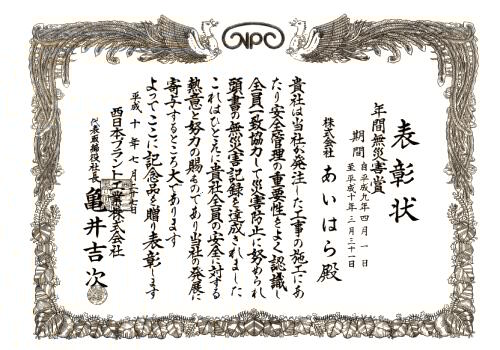 NPC
表彰状
年間無災害賞
期間 自平成九年四月一日
至平成十年三月三十一日
株式会社 あいはら殿
貴社は当社が発注した工事の施工にあ
たり安全管理の重要性をよく認識し
全員一致協力して災害防止に努められ
頭書の無災害記録を達成されました
これはひとえに貴社全員の安全に対する
熱意と努力の賜ものであり当社の発展に
寄与するところ大であります
よってここに記念品を贈り表彰します
平成十年七月
西日本プラント工業株式会社
代表取締役社長 亀井吉次